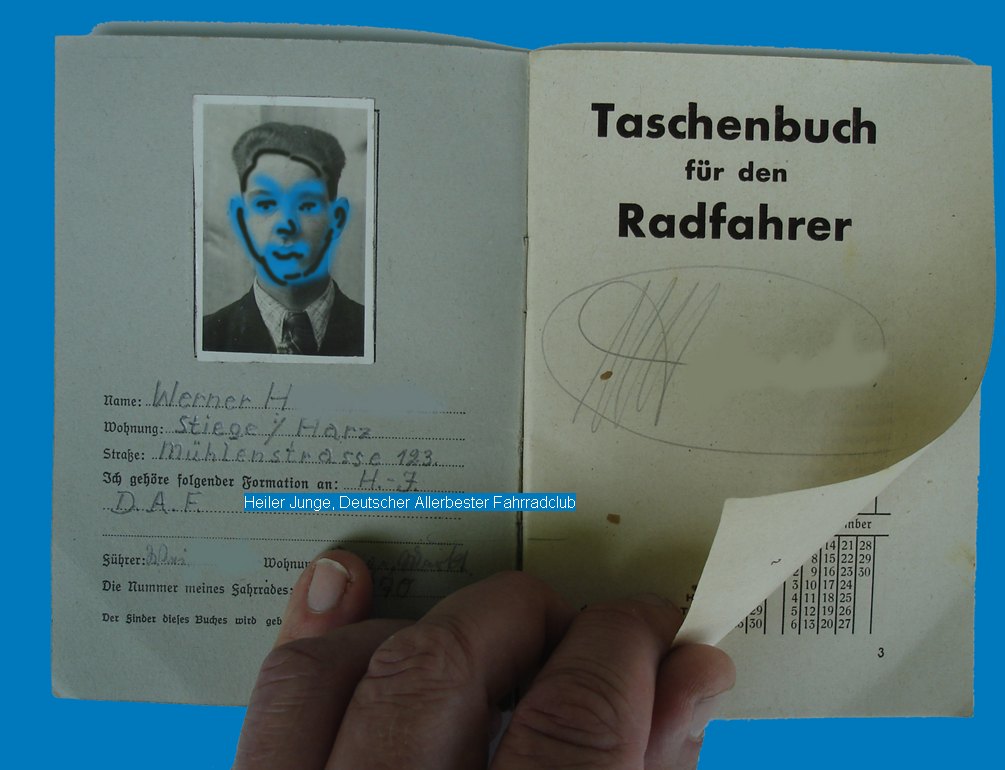 Name: Werner H
Wohnung: Stiege / Harz
Straße: Mühlenstrasse 123.
Ich gehöre folgender Formation an: H.-J.
D. A. F.
Heiler Junge, Deutscher Allerbester Fahrradclub
Führer:
Die Nummer meines Fahrrades:
Der Finder dieses Buches wird
Taschenbuch
für den
Radfahrer
14 21 28
8 15 22 29
2 9 16 23 30
3 10 17 24
4 11 18 25
29 5 12 19 26
30 6 13 20 27
3